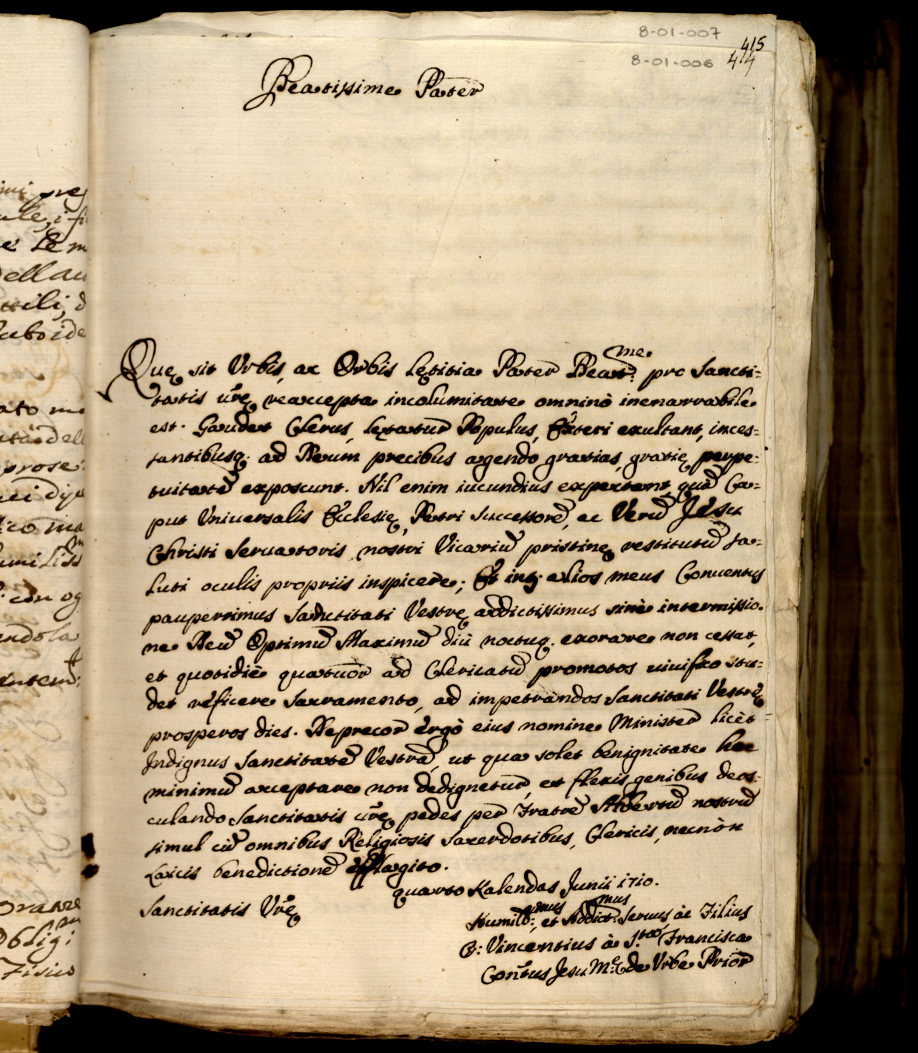 8-01-007
415
8-01-006 414
Beatissime Pater
Quę sit Urbis, ac Orbis lętitia Pater Beat.me pro Sancti-
tatis vrę reaccepta incolumitate omninò inenarrabile
est. Gaudet Clerus, lętatur Populus, Exteri exultant, inces-
santibusq; ad Deum precibus agendo gratias, gratię perpe-
tuitatē exposcunt. Nil enim iucundius expectant, quā Ca-
put Universalis Ecclesię, Petri Successorē, ac Verū Jesu
Christi Servatoris nostri Vicariū pristinę restitutū sa-
luti oculis propriis inspicere; Et intʒ alios meus Conventus
pauperrimus Sanctitati Vestrę addictissimus sinè intermissio-
ne Deū Optimū Maximū diù noctuq. exorare non cessat,
et quotidiè quatuòr ad Clericatū promotos vivifico stu-
det reficere Sacramento, ad impetrandos Sanctitati Vestrę
prosperos dies. Deprecor ergò eius nomine Minister licèt
Indignus Sanctitatē Vestrā, ut qua solet benignitate hoc
minimū acceptare non dedignetur, et flexis genibus deos-
culando Sanctitatis vrę pedes per Fratrē Albertū nostrū
simul cū omnibus Religiosis Sacerdotibus, Clericis, necnòn
Laicis benedictionē efflagito.
quarto Kalendas Junii 1710.
Sanctitatis Vrę
Humil.imus et Addict.mus Servus àc Filius
F: Vincentius à S.ta Francisca
Contus Jesu M.ę de Urbe Prior